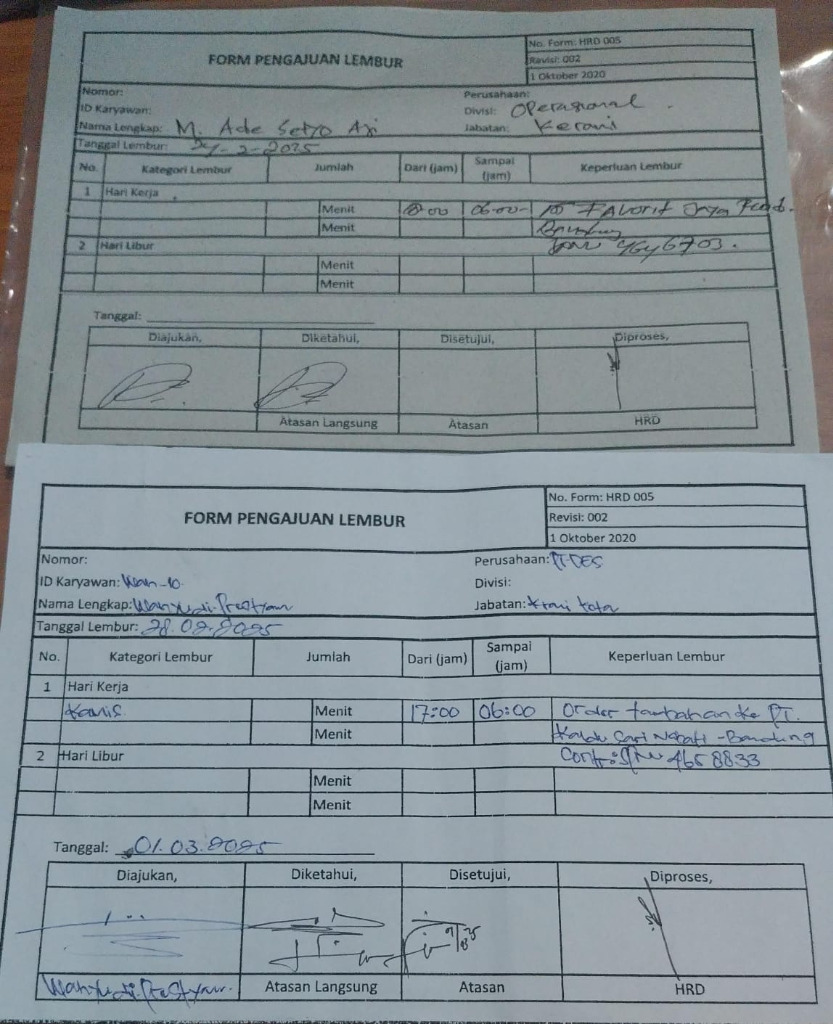 FORM PENGAJUAN LEMBUR
No. Form: HRD 005
Revisi: 002
1 Oktober 2020
Nomor:
Perusahaan:
ID Karyawan:
Divisi: Operasional
Nama Lengkap: M. Ade Setyo Aji
Jabatan: Kerani
Tanggal Lembur: -2-2025
No. Kategori Lembur Jumlah Dari (jam) Sampai (jam) Keperluan Lembur
1 Hari Kerja
Menit 06:00 Favorit Jaya
Menit Bandung
2 Hari Libur 4646703.
Menit
Menit
Tanggal:
Diajukan, Diketahui, Disetujui, Diproses,
Atasan Langsung Atasan HRD
FORM PENGAJUAN LEMBUR
No. Form: HRD 005
Revisi: 002
1 Oktober 2020
Nomor:
Perusahaan: PT.DES
ID Karyawan: Wan-10
Divisi:
Nama Lengkap: Wahyudi.
Jabatan: Krani
Tanggal Lembur: 28.02.2025
No. Kategori Lembur Jumlah Dari (jam) Sampai (jam) Keperluan Lembur
1 Hari Kerja
Kamis Menit 17:00 06:00 Order tambahan ke PT.
Menit Sari Nabati - Bandung
2 Hari Libur 4658833
Menit
Menit
Tanggal: 01.03.2025
Diajukan, Diketahui, Disetujui, Diproses,
Wahyudi. Atasan Langsung Atasan HRD